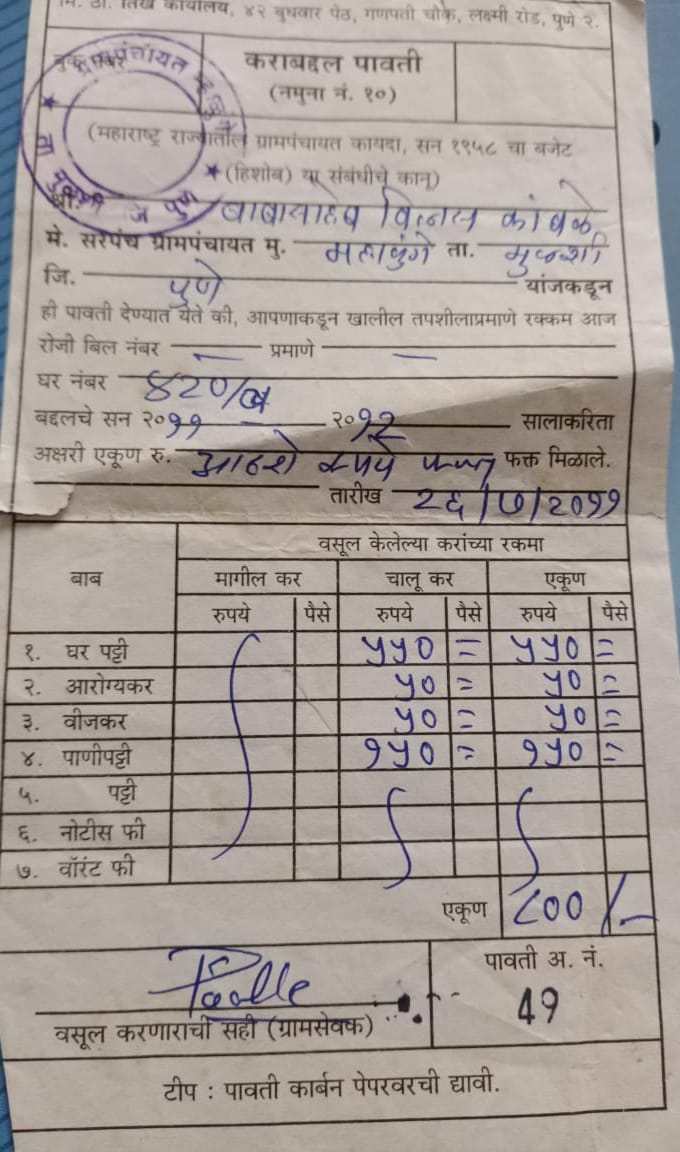 मि. ठा. तिखे कार्यालय, ४२ बुधवार पेठ, गणपती चौक, लक्ष्मी रोड, पुणे २.
कराबद्दल पावती
(नमुना नं. १०)
(महाराष्ट्र राज्यातील ग्रामपंचायत कायदा, सन १९५८ चा बजेट
(हिशोब) या संबंधीचे कानू)
श्री. बाबासाहेब विठ्ठल कांबळे
मे. सरपंच ग्रामपंचायत मु. महाळुंगे ता. मुळशी
जि. पुणे यांजकडून
ही पावती देण्यात येते की, आपणाकडून खालील तपशीलाप्रमाणे रक्कम आज
रोजी बिल नंबर — प्रमाणे —
घर नंबर ४२०/ब
बद्दलचे सन २०११ - २०१२ सालाकरिता
अक्षरी एकूण रु. आठशे रुपये फक्त फक्त मिळाले.
तारीख २६/७/२०११
बाब वसूल केलेल्या करांच्या रकमा
मागील कर चालू कर एकूण
रुपये पैसे रुपये पैसे रुपये पैसे
१. घर पट्टी ५५० = ५५० =
२. आरोग्यकर ५० = ५० =
३. वीजकर ५० = ५० =
४. पाणीपट्टी १५० = १५० =
५. पट्टी
६. नोटीस फी
७. वॉरंट फी
एकूण ८००/-
पावती अ. नं.
49
वसूल करणाराची सही (ग्रामसेवक)
टीप : पावती कार्बन पेपरवरची द्यावी.